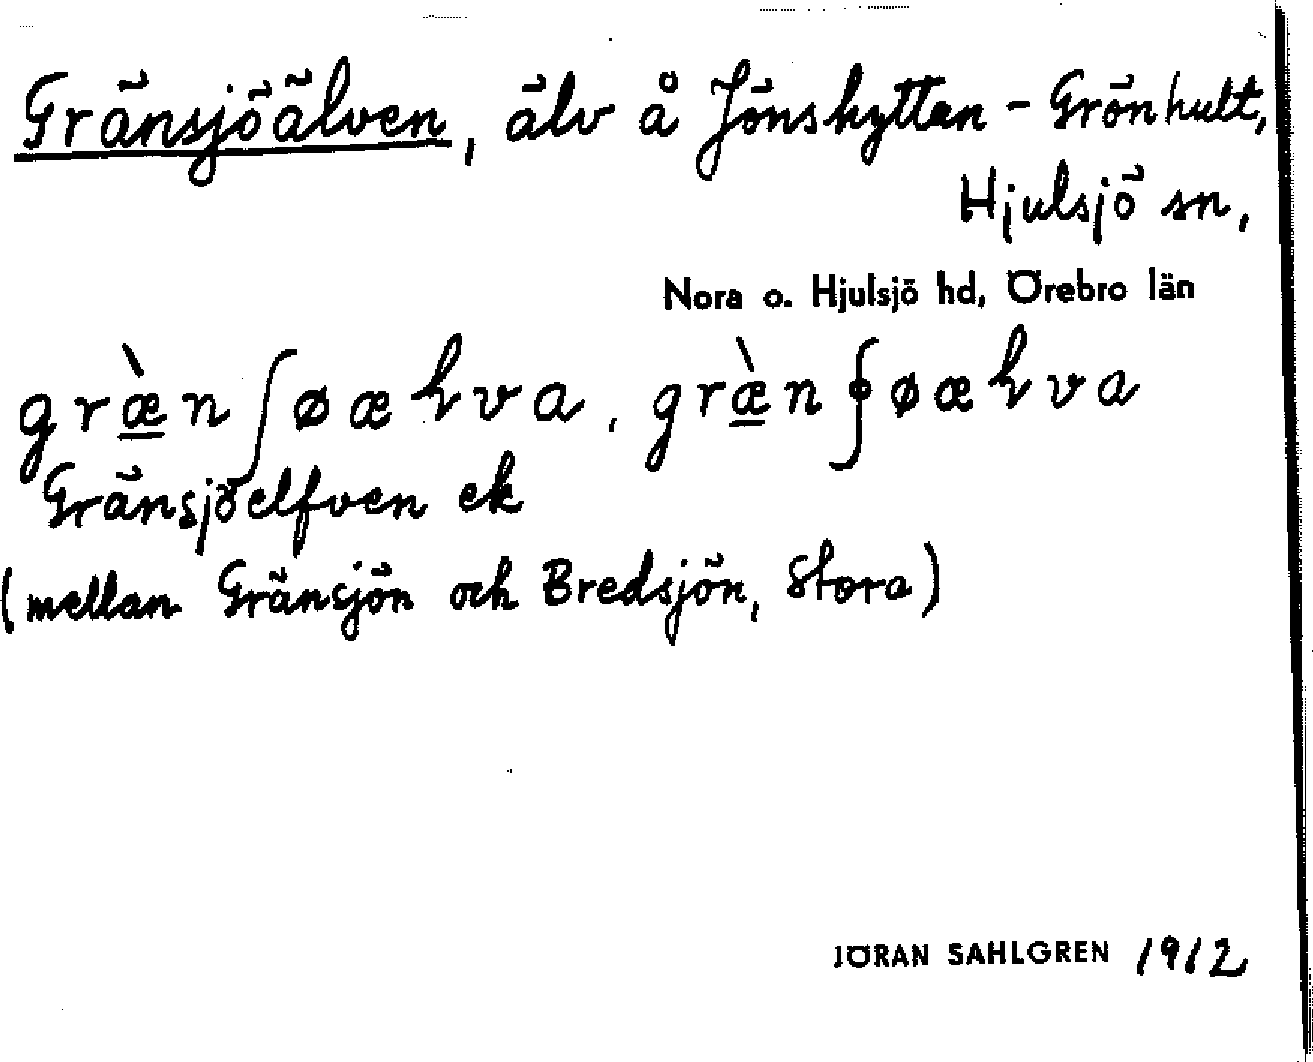 Gränsjöälven, älv å Jönshyttan - Grönhult,
Hjulsjö sn,
Nora o. Hjulsjö hd, Örebro län
græ̱̀nʃøæɬva, græ̱̀nʃøæɬva
Gränsjöelfven ek
(mellan Gränsjön och Bredsjön, Stora)
JÖRAN SAHLGREN 1912